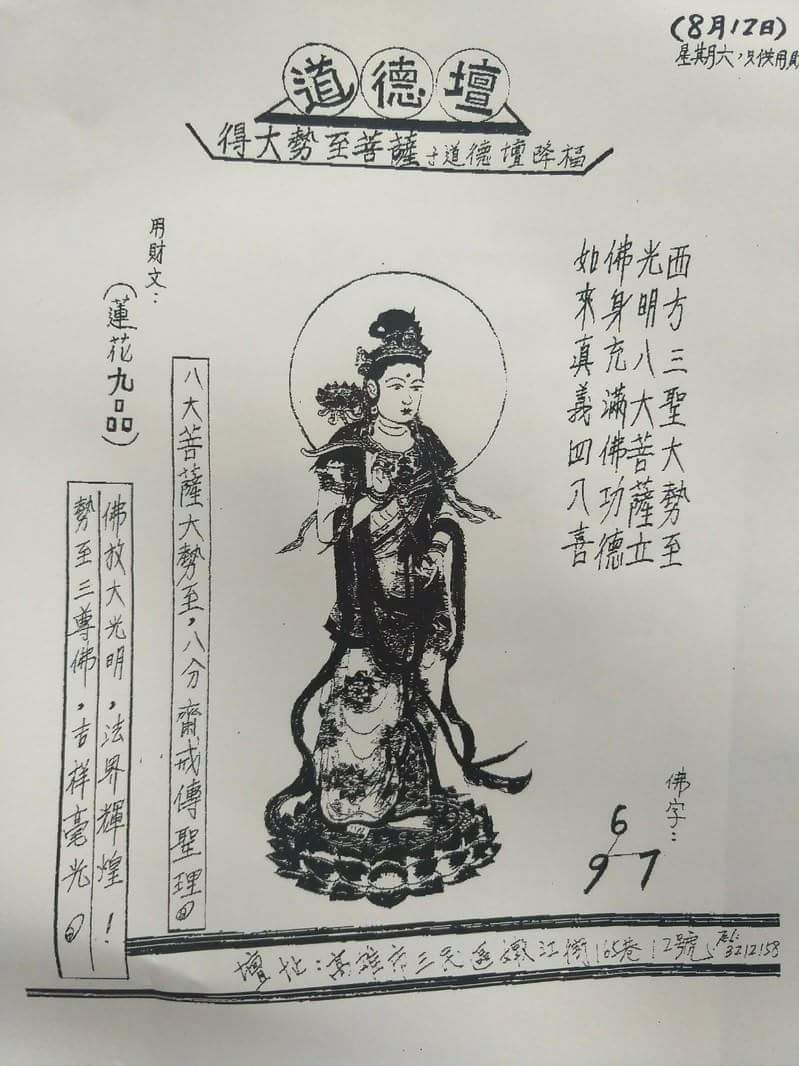 (8月12日)
星期六，只供用財
道德壇
得大勢至菩薩于道德壇降福
西方三聖大勢至
光明八大菩薩立
佛身充滿佛功德
如來真義四八喜
用財文：
(蓮花九品)
八大菩薩大勢至，八分齋戒傳聖理
佛放大光明，法界輝煌！
勢至三尊佛，吉祥毫光
佛字：
6
9 7
壇址：高雄市三民區嫩江街165巷12號
3212158